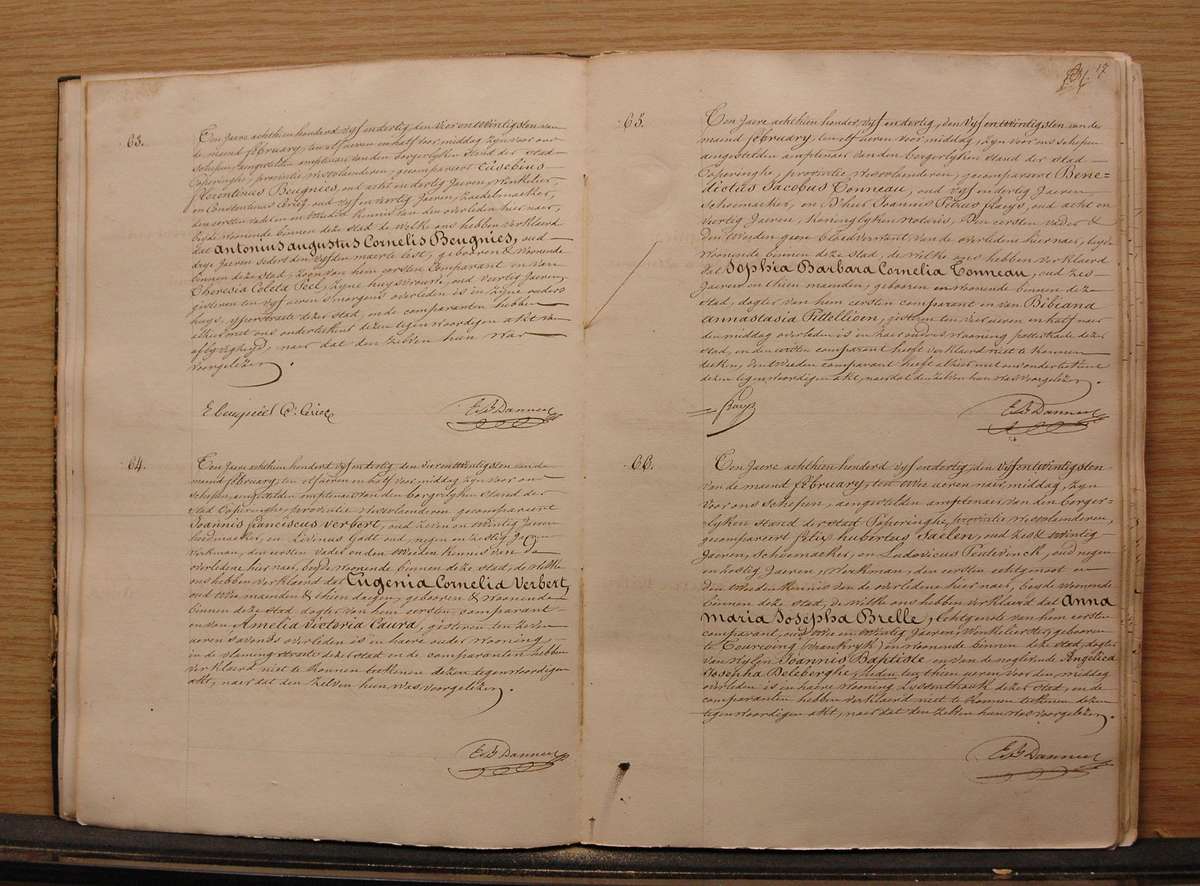 63.
Ten Jaere achthien honderd vyf en dertig den vier en twintigsten van
de maend february, ten elf ueren en half voor middag zyn voor ons
schepen, aengestelden amptenaer van den borgerlyken stand der stad
Poperinghe, provintie westvlaenderen, gecompareert Eusebius
Florentinus Beugnies, oud acht en dertig Jaeren, winkelier,
en Constantinus Criez oud vyf en veertig Jaeren, Zaedelmaeker,
den eersten vader en tweeden kennis van den overleden hier naer,
beyde woonende binnen deze stad, de welke ons hebben verklaerd
dat antonius augustus Cornelis Beugnies, oud
drye Jaeren sedert den vyfden maerte lest, gebooren & woonende
binnen deze stad, zoon van hem eersten comparant en van
Theresia Coleta Peel, zyne huysvrouw, oud veertig Jaeren,
gisteren ten vyf ueren s'morgens overleden is in zyne ouders
huys, yperstraete dezer stad, en de comparanten hebben
alhier met ons onderteekent dezen tegenwoordigen akt van
aflyvigheyd, naer dat den zelven hun was
voorgelezen.
E beugnies C. Criez
Danneel
64.
Ten Jaere achthien honderd vyf en dertig, den vier en twintigsten van de
maend february, ten elf ueren en half voor middag, zyn voor ons
schepen, aengestelden amptenaer van den borgerlyken stand der
stad Poperinghe provintie westvlaenderen gecompareert
Joannis franciscus Verbert, oud zeven en twintig Jaeren
loodmaeker, en Livinus Galt oud negen en zestig Jaeren
werkman, den eersten vader en den tweeden kennis van de
overledene hier naer, beyde woonende binnen deze stad, de welke
ons hebben verklaerd dat Eugenia Cornelia Verbert,
oud twee maenden & thien daegen, gebooren & woonende
binnen deze stad, dogter van hem eersten comparant
en van Amelia Victoria Caura, gisteren ten zeven
ueren s'avonds overleden is in haere ouders wooning,
in de vlaming straete dezer stad en de comparanten hebben
verklaerd niet te konnen teekenen dezen tegenwoordigen
akt, naer dat den zelven hun was voorgelezen.
Danneel
17
65.
Ten Jaere achthien honderd vyf en dertig, den vyf en twintigsten van de
maend february, ten elf ueren voor middag, zyn voor ons schepen
aengestelden amptenaer van den borgerlyken stand der stad
Poperinghe, provintie westvlaenderen, gecompareert Bene=
dictus Jacobus Tonneau, oud vyf en dertig Jaeren,
schoemaeker, en d'heer Joannis Petrus flaeys, oud acht en
veertig Jaeren, koninglyken notaris, den eersten vader &
den tweeden geene bloedverwant van de overledene hier naer, beyde
woonende binnen deze stad, de welke ons hebben verklaerd
dat Sophia Barbara Cornelia Tonneau, oud zes
Jaeren en thien maenden, gebooren en woonende binnen deze
stad, dogter van hem eersten comparant en van Bibiana
annastasia Pittellioen, gisteren ten vier ueren en half naer
den middag overleden is in haer ouders wooning potterstraete dezer
stad, en den eersten comparant heeft verklaerd niet te konnen
teeken, den tweeden comparant heeft alhier met ons onderteekent
dezen tegenwoordigen akt, naer dat den zelven hun was voorgelezen.
Danneel
66.
Ten Jaere achthien honderd vyf en dertig, den vyf en twintigsten
van de maend february, ten twee ueren naer middag, zyn
voor ons schepen, aengestelden amptenaer van den borger=
lyken stand der stad Poperinghe, provintie westvlaenderen,
gecompareert felix hubertus Saelen, oud zes & twintig
Jaeren, schoemaeker, en Ludovicus Pendevinck, oud negen
en zestig Jaeren, werkman, den eersten echtgenoot en
den tweeden kennis van de overledene hier naer, beyde woonende
binnen deze stad, de welke ons hebben verklaerd dat anna
maria Josepha Brelle, echtgenote van hem eersten
comparant, oud drie en twintig Jaeren, winkelierster, gebooren
te Tourcoing (vrankryk) en woonende binnen deze stad, dogter
van wylen Joannis Baptiste en van de nogleevende Angelica
Josepha Deleberghe, heden ten thien ueren voor den middag
overleden is in haere wooning dezer stad, en de
comparanten hebben verklaerd niet te konnen teekenen dezen
tegenwoordigen akt, naer dat den zelven hun was voorgelezen.
Danneel